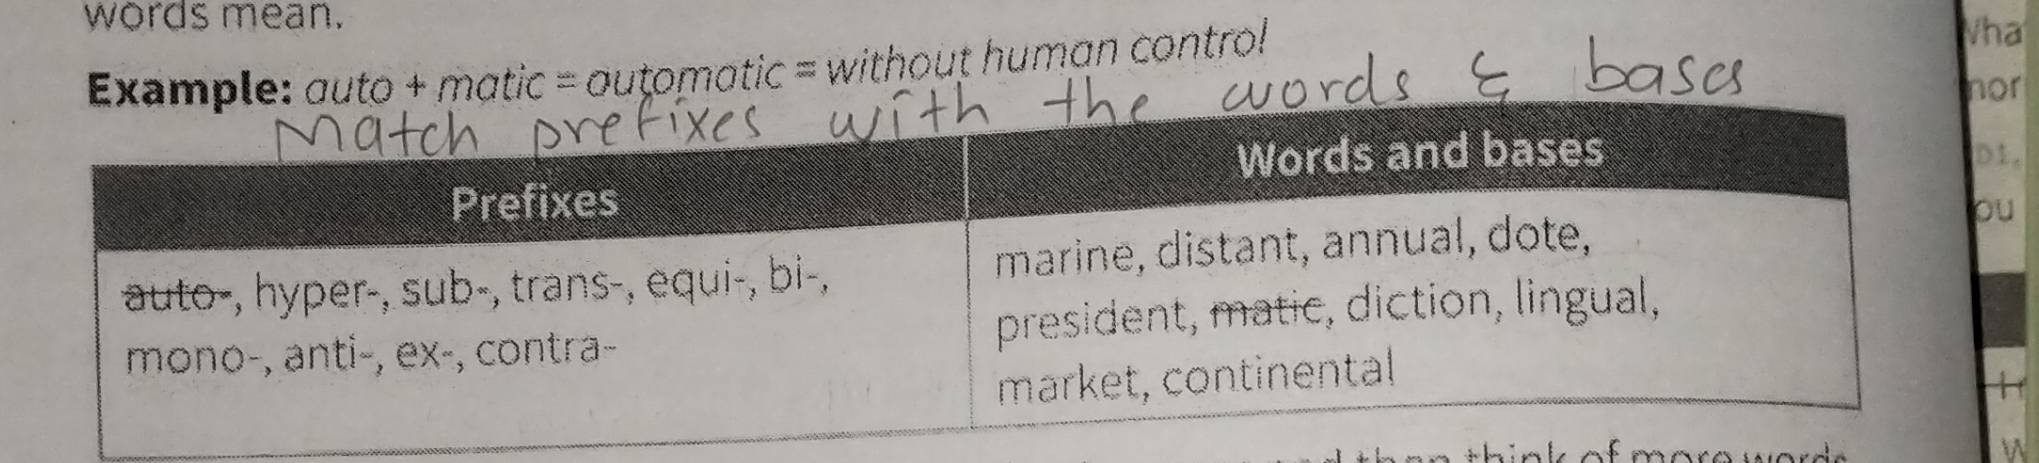 words mean.
Example: auto + matic = automatic = without human control
Match prefixes with the words & bases
Prefixes
Words and bases
auto-, hyper-, sub-, trans-, equi-, bi-,
mono-, anti-, ex-, contra-
marine, distant, annual, dote,
president, matic, diction, lingual,
market, continental
think of more words